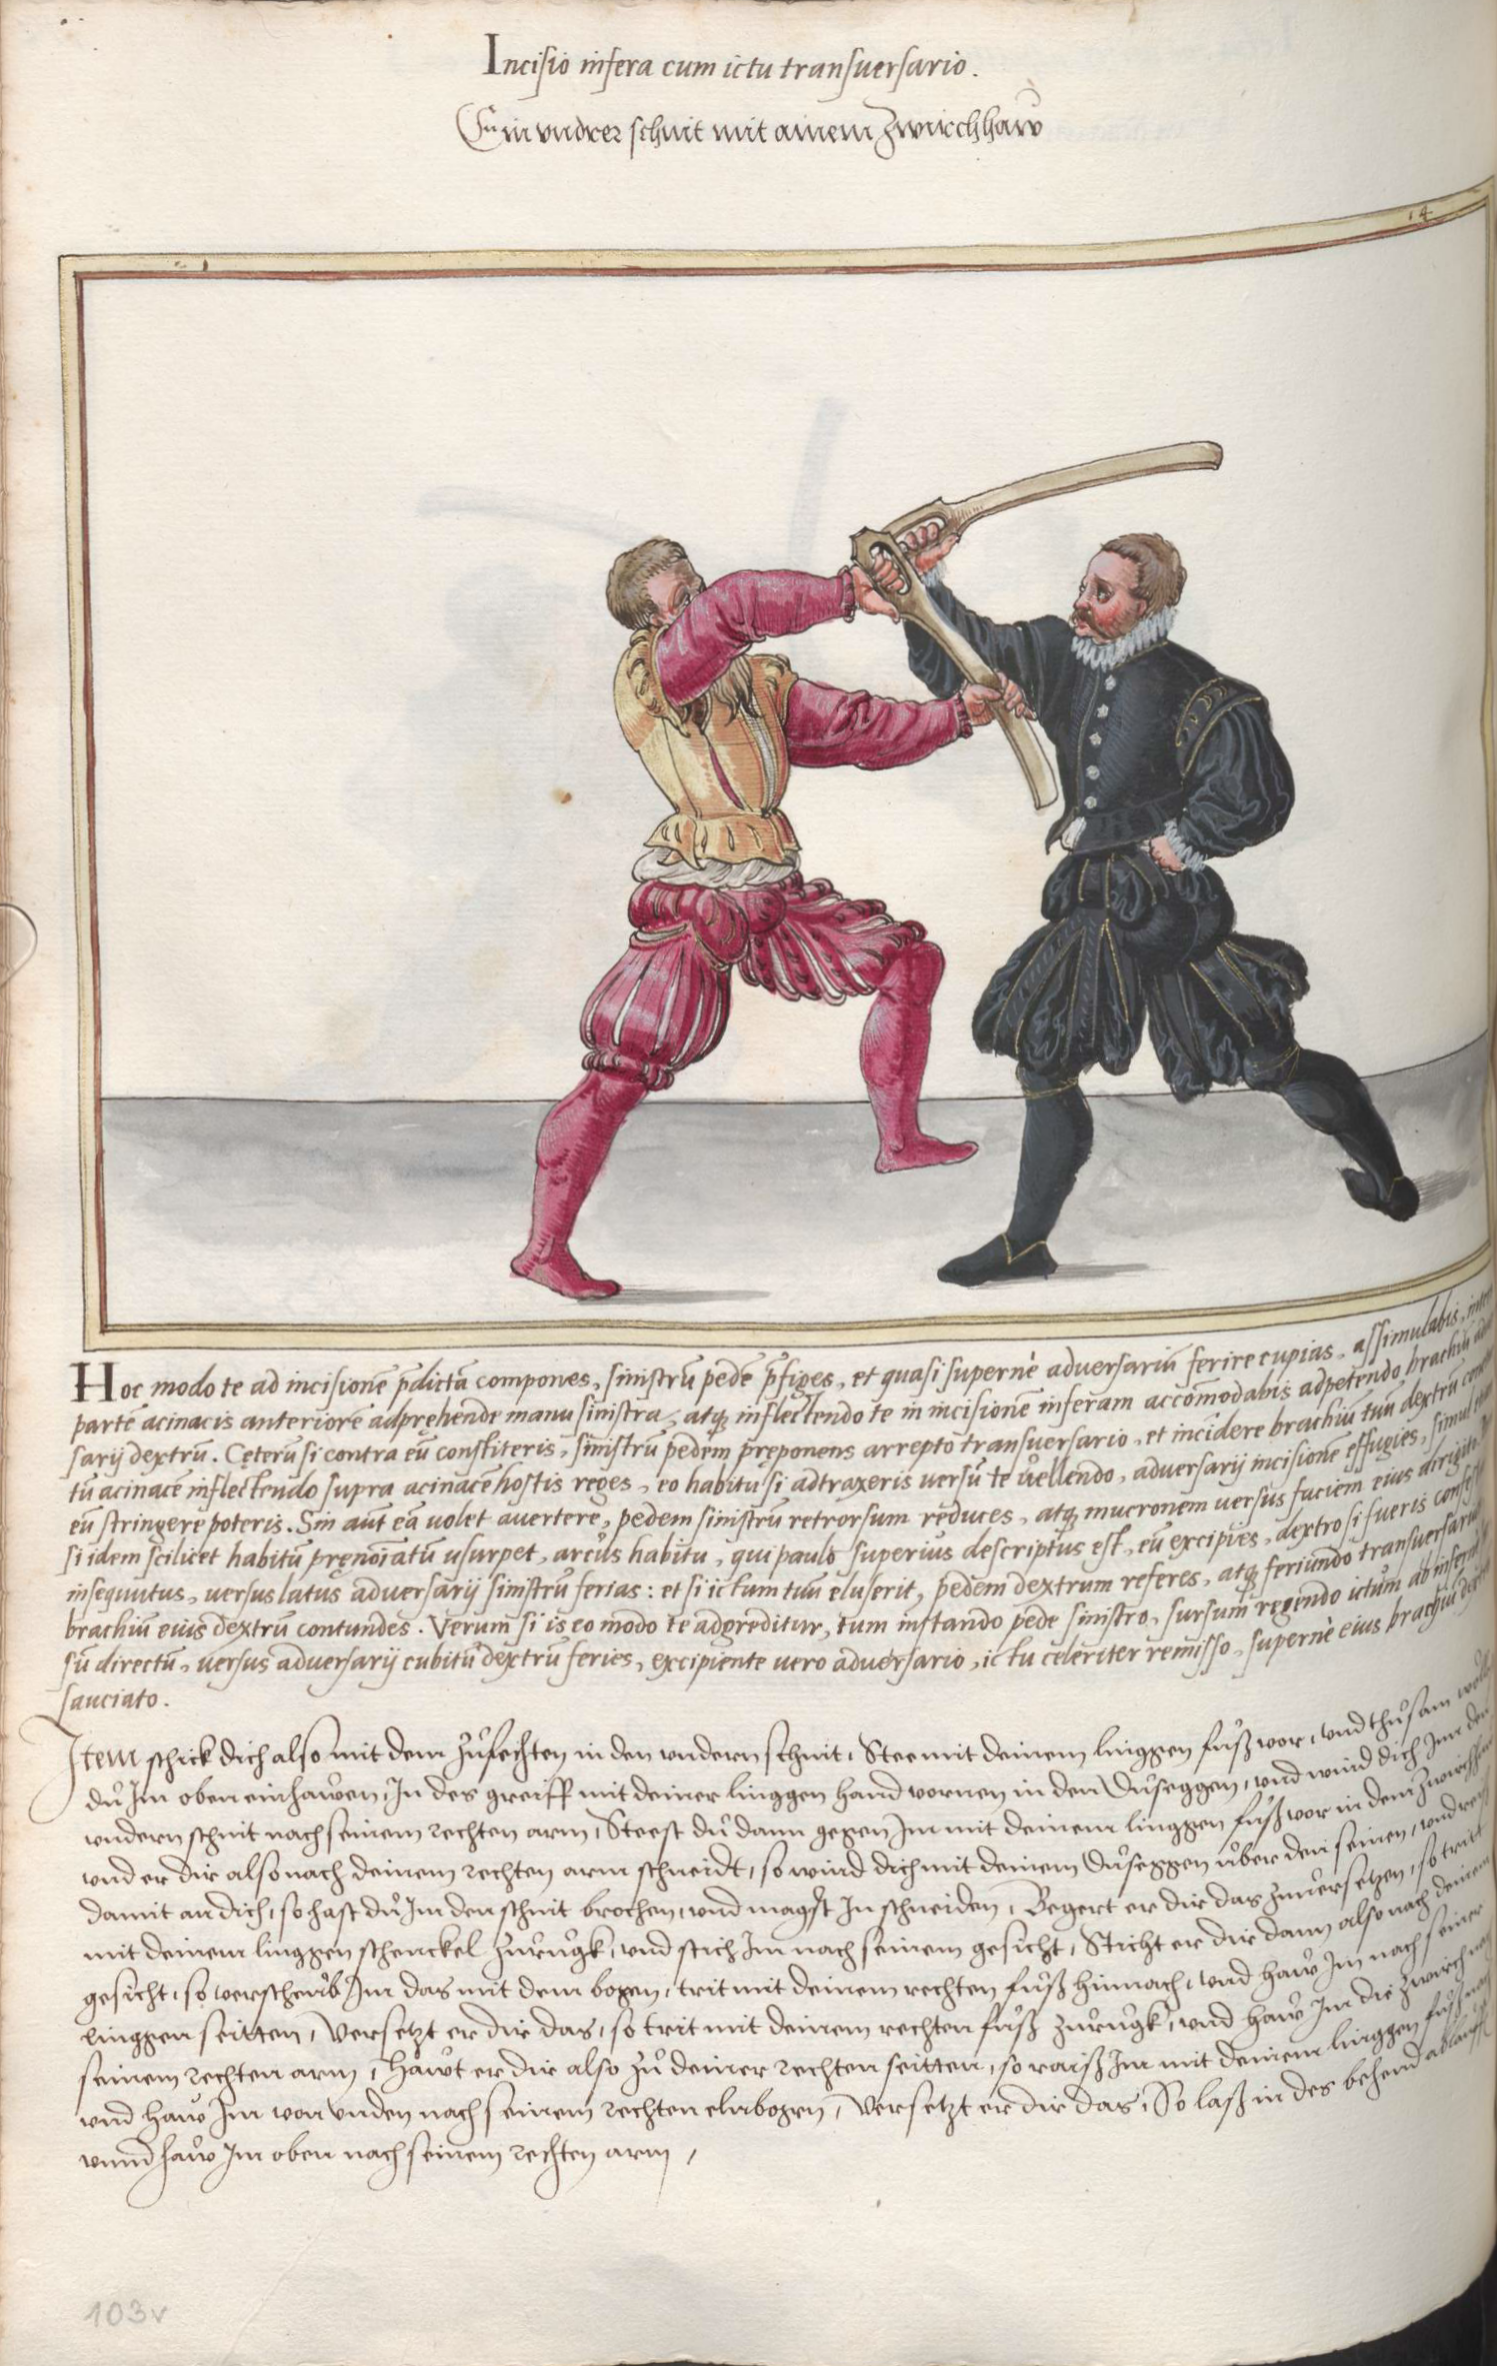 Incisio infera cum ictu transuersario.
Ein vndrer schnit mit ainem zwirchhaw
14
Hoc modo te ad incisionē p̄dictā compones, sinistrū pedē p̄figes, et quasi supernè aduersariū ferire cupias, assimulabis,
partē acinacis anteriorē adpręhende manu sinistra, atq; inflectendo te in incisionē inferam accōmodabis adpetendo brachiū
sarij dextrū. Cęterū si contra eū constiteris, sinistrū pedem pręponens arrepto transuersario, et incidere brachiū tuū dextrū
tū acinacē inflectendo supra acinacē hostis reges, eo habitu si adtraxeris versū te vellendo, aduersarij incisionē effugies, simul
eū stringere poteris. Sin aūt eā uolet auertere, pedem sinistrū retrorsum reduces, atq; mucronem versus faciem eius
si idem scilicet habitū pręnoīatū usurpet, arcus habitu, qui paulo superius descriptus est, eū excipies, dextro si fueris
insequutus, versus latus aduersarij sinistrū ferias: et si ictum tuū eluserit, pedem dextrum referes, atq; feriundo
brachiū eius dextrū contundes. Verum si is eo modo te adgreditur, tum instando pede sinistro, sursum regendo ictum ab
sū directū, versus aduersarij cubitū dextrū feries, excipiente vero aduersario, ictu celeriter remisso, supernè eius brachiū
sauciato.
Item schick dich also mit dem zůfechten in den vndern schnit, Stee mit deinem linggen fůß vor, vnd thů sam
dů Im oben einhawen, In des greiff mit deiner linggen hand vornen in den Duseggen, vnd wind dich Im
vndern schnit nach seinem rechten arm, Steest dů dann gegen Im mit deinem linggen fůß vor in dem
vnd er dir also nach deinem rechten arm schneidt, so wind dich mit deinem Duseggen über den seinen,
damit an dich, so hast dů Im den schnit brochen, vnd magst In schneiden, Begert er dir das zuuersetzen, so
mit deinem linggen schenckel zůrůgk, vnd stich Im nach seinem gesicht, Sticht er dir dann also nach deinem
gesicht, so verscheub Im das mit dem bogen, trit mit deinem rechten fůß hinnach, vnd haw Im nach seiner
linggen seitten, Versetzt er dir das, so trit mit deinem rechten fůß zůrůgk, vnd haw Im die zwirch
seinem rechten arm, Hawt er dir also zů deiner rechten seitten, so raiß Im mit deinem linggen
vnd haw Im von vnden nach seinem rechten elnbogen, Versetzt er dir das, So laß in des behend
vnnd haw Im oben nach seinem rechten arm,
103v